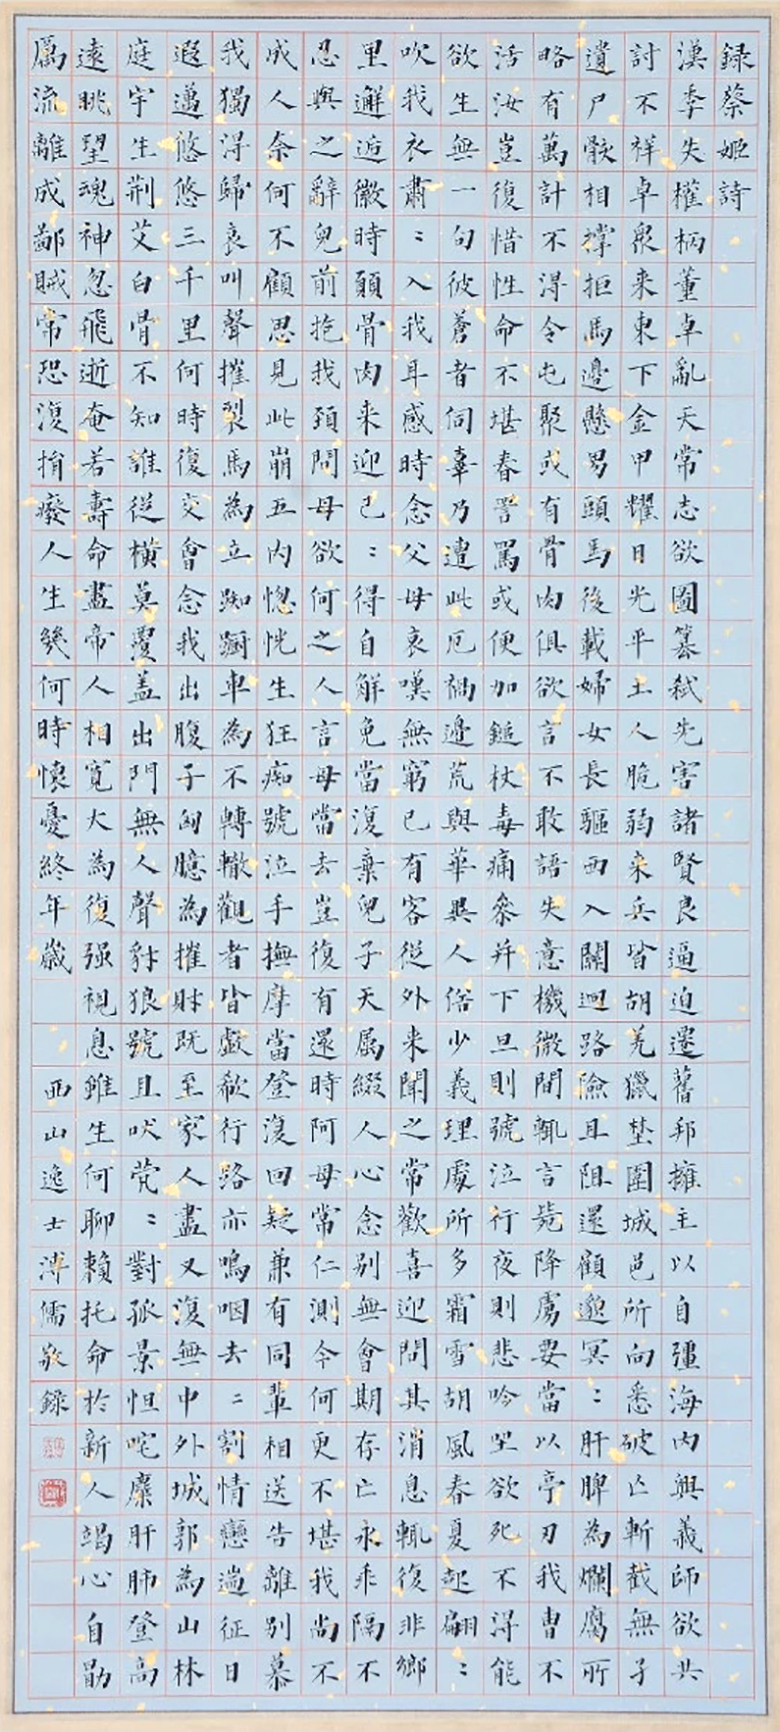 録蔡姬詩
漢季失權柄董卓亂天常志欲圖篡弒先害諸賢良逼迫遷舊邦擁主以自彊海內興義師欲共
討不祥卓眾来東下金甲耀日光平土人脆弱来兵皆胡羌獵埜圍城邑所向悉破亡斬截無孑
遺尸骸相撐拒馬邊懸男頭馬後載婦女長驅西入關迴路險且阻還顧邈冥〻肝脾為爛腐所
略有萬計不得令屯聚或有骨肉俱欲言不敢語失意機微間輒言斃降虜要當以亭刃我曹不
活汝豈復惜性命不堪舂詈罵或便加鎚杖毒痛參并下旦則號泣行夜則悲吟坐欲死不得能
欲生無一句彼蒼者伺辜乃遭此厄禍邊荒與華異人俗少義理處所多霜雪胡風春夏起翩〻
吹我衣肅〻入我耳感時念父母哀嘆無窮已有客從外来聞之常歡喜迎問其消息輒復非鄉
里邂逅徼時願骨肉来迎己〻得自解免當復棄兒子天属綴人心念別無會期存亡永乖隔不
忍與之辭兒前抱我頚問母欲何之人言母當去豈復有還時阿母常仁測今何更不堪我尚不
成人奈何不顧思見此崩五內惚恍生狂痴號泣手撫摩當登復回疑兼有同輩相送告離別慕
我獨得歸哀叫聲摧裂馬為立踟躕車為不轉轍觀者皆歔欷行路亦嗚咽去〻割情戀遄征日
遐邁悠悠三千里何時復交會念我出腹子匈臆為摧財既至家人盡又復無中外城郭為山林
庭宇生荊艾白骨不知誰從橫莫覆蓋出門無人聲豺狼號且吠煢〻對孤景怛咤麋肝肺登高
遠眺望魂神忽飛逝奄若壽命盡帝人相寬大為復强視息雖生何聊賴托命於新人竭心自勖
厲流離成鄙賊常恐復捐廢人生幾何時懷憂終年歲 西山逸士溥儒敬錄